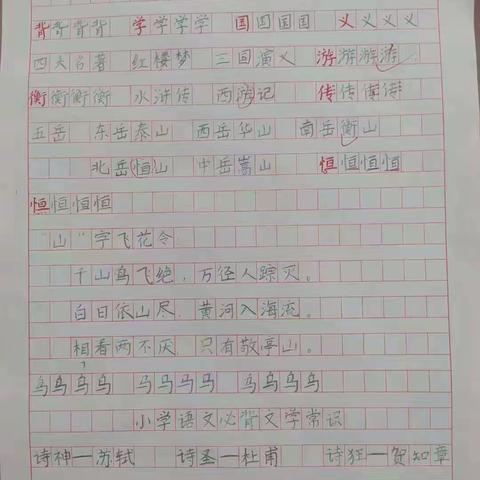 背背背背 学学学学 国国国国 义义义义
四大名著 红楼梦 三国演义 游游游游
衡衡衡衡 水浒传 西游记 传传传传
五岳 东岳泰山 西岳华山 南岳衡山
北岳恒山 中岳嵩山 恒恒恒恒
恒恒恒恒
“山”字飞花令
千山鸟飞绝，万径人踪灭。
白日依山尽，黄河入海流。
相看两不厌，只有敬亭山。
鸟鸟鸟鸟 马马马马 乌乌乌乌
小学语文必背文学常识
诗神—苏轼 诗圣—杜甫 诗狂—贺知章